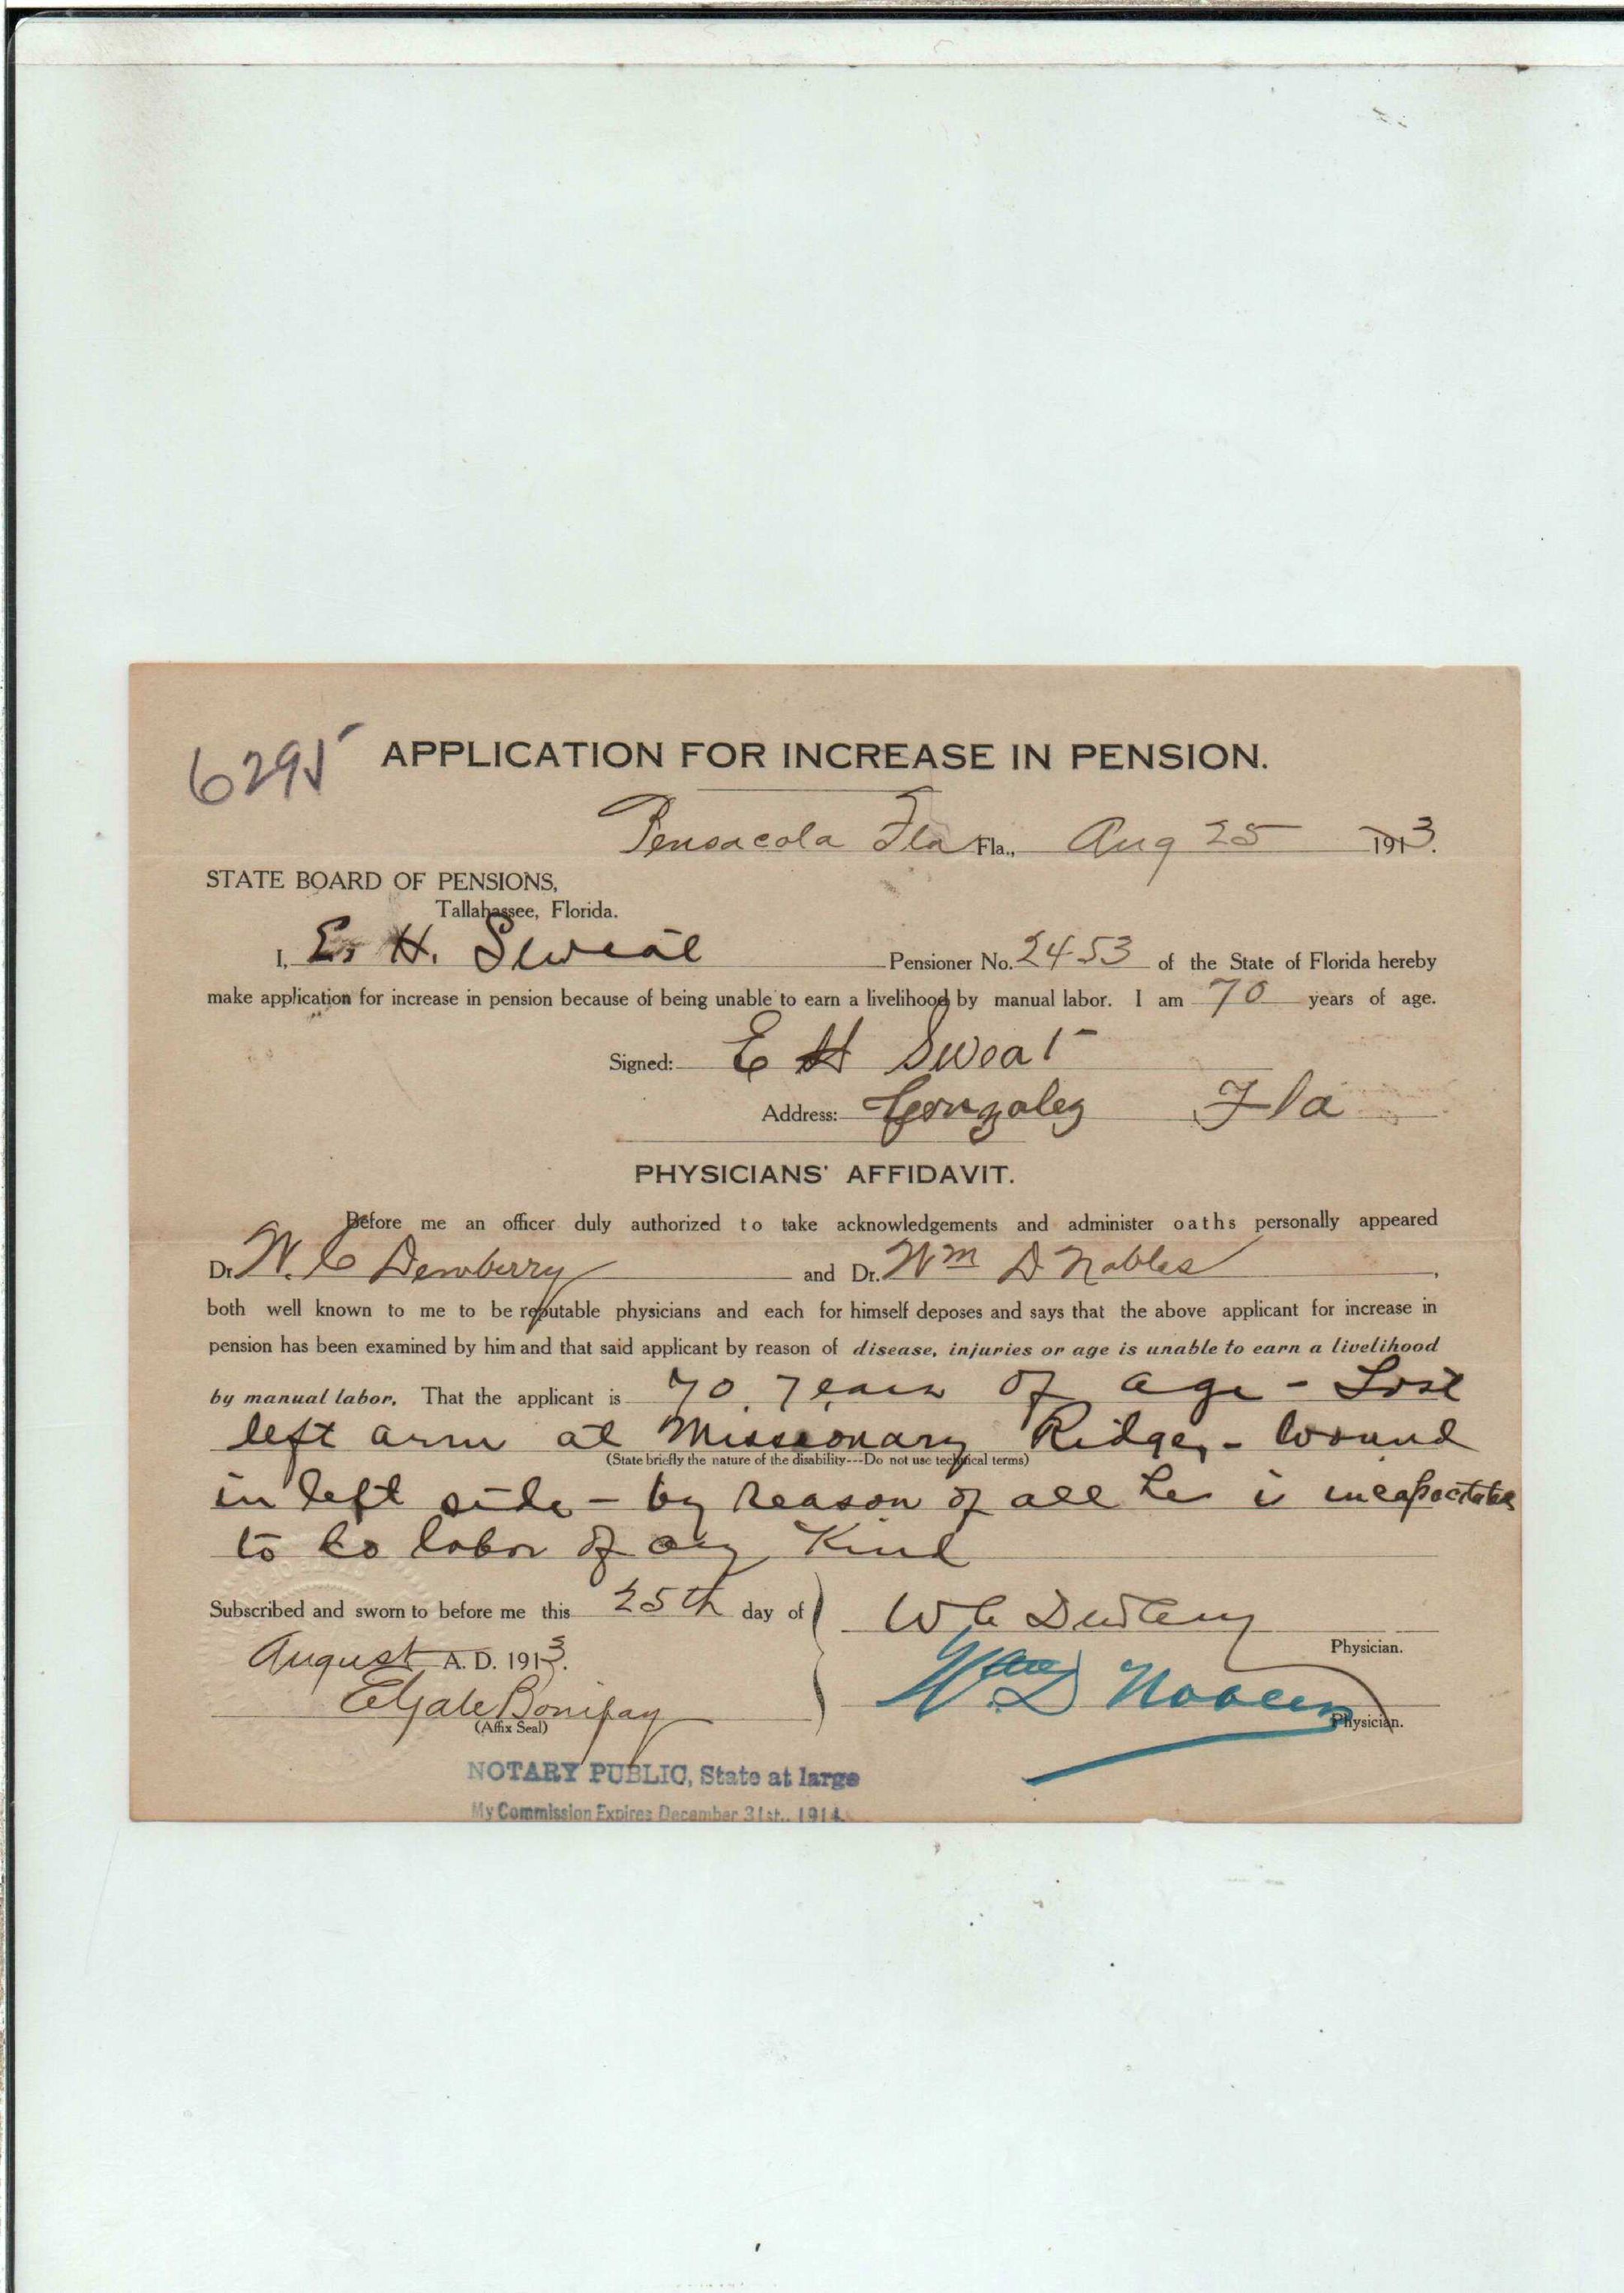 6295 APPLICATION FOR INCREASE IN PENSION.
Pensacola Fla Fla., Aug 25 1913.
STATE BOARD OF PENSIONS,
Tallahassee, Florida.
I, E. H. Sweat Pensioner No. 2453 of the State of Florida hereby
make application for increase in pension because of being unable to earn a livelihood by manual labor. I am 70 years of age.
Signed: E H Sweat
Address: Gonzalez Fla
PHYSICIANS' AFFIDAVIT.
Before me an officer duly authorized to take acknowledgements and administer oaths personally appeared
Dr. W. C Dewberry and Dr. Wm D Nobles,
both well known to me to be reputable physicians and each for himself deposes and says that the above applicant for increase in
pension has been examined by him and that said applicant by reason of disease, injuries or age is unable to earn a livelihood
by manual labor. That the applicant is 70 years of age - Lost
left arm at Missionary Ridge, - Wound
(State briefly the nature of the disability---Do not use technical terms)
in left side - by reason of all he is
to do labor of any Kind
Subscribed and sworn to before me this 25th day of W C Dewberry
Physician.
August A. D. 1913.
Bonifay Wm D Nobles
(Affix Seal) Physician.
NOTARY PUBLIC, State at large
My Commission Expires December 31st., 1914.